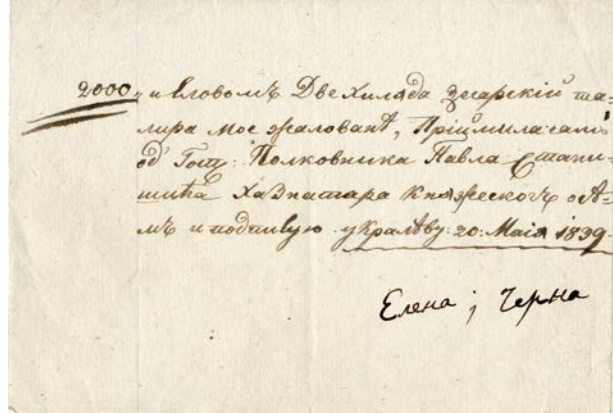 2000„ и Словомъ Две Хиляда Цесарскій та-
лира мое жалованѣ, Пріймила самь
одъ Госп: Полковника Павла Стани-
шића ХаЗнатара Княжескогъ
и подпишую у Кралѣву: 20: Маіа 1839.
Елена ; Черна